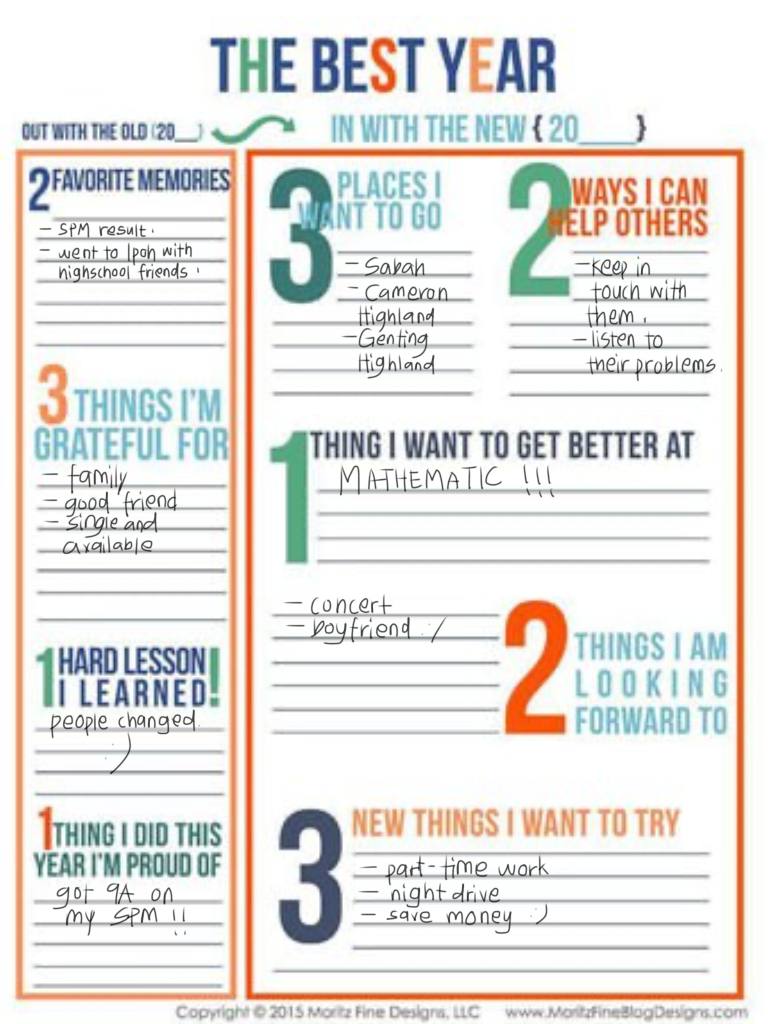 THE BEST YEAR
OUT WITH THE OLD (20__)
IN WITH THE NEW { 20____}
2 FAVORITE MEMORIES
- SPM result.
- went to Ipoh with
highschool friends.
3 THINGS I'M
GRATEFUL FOR
- family
- good friend
- single and
available
1 HARD LESSON
I LEARNED!
people changed
:)
1 THING I DID THIS
YEAR I'M PROUD OF
got 9A on
my SPM !!
3 PLACES I
WANT TO GO
- Sabah
- Cameron
Highland
- Genting
Highland
2 WAYS I CAN
HELP OTHERS
- Keep in
touch with
them.
- listen to
their problems.
1 THING I WANT TO GET BETTER AT
MATHEMATIC !!!
- concert
- boyfriend :/
2 THINGS I AM
LOOKING
FORWARD TO
3 NEW THINGS I WANT TO TRY
- part-time work
- night drive
- save money :)
Copyright © 2015 Moritz Fine Designs, LLC www.MoritzFineBlogDesigns.com